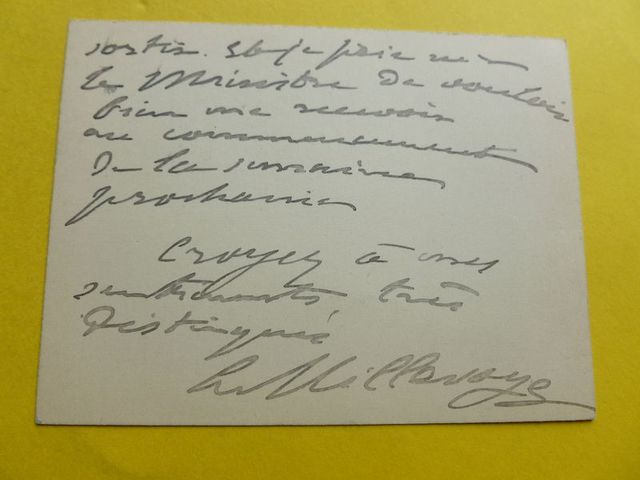 sortir. Et je prie
le Ministre de vouloir
bien me recevoir
au commencement
de la semaine
prochaine
Croyez à mes
sentiments très
distingués
L. Millevoye